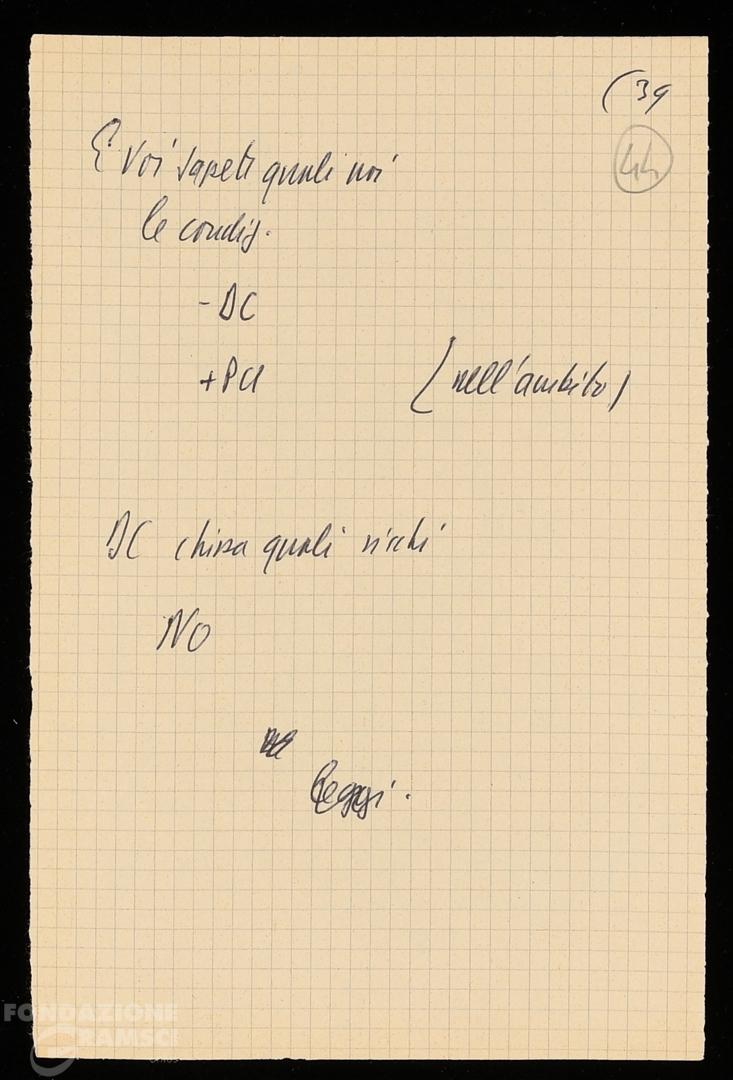 (39
44
E voi sapete quali noi
le condiz.
- DC
+ PCI (nell'ambito)
DC chissa quali rischi
NO
Leggi.
FONDAZIONE
GRAMSCI